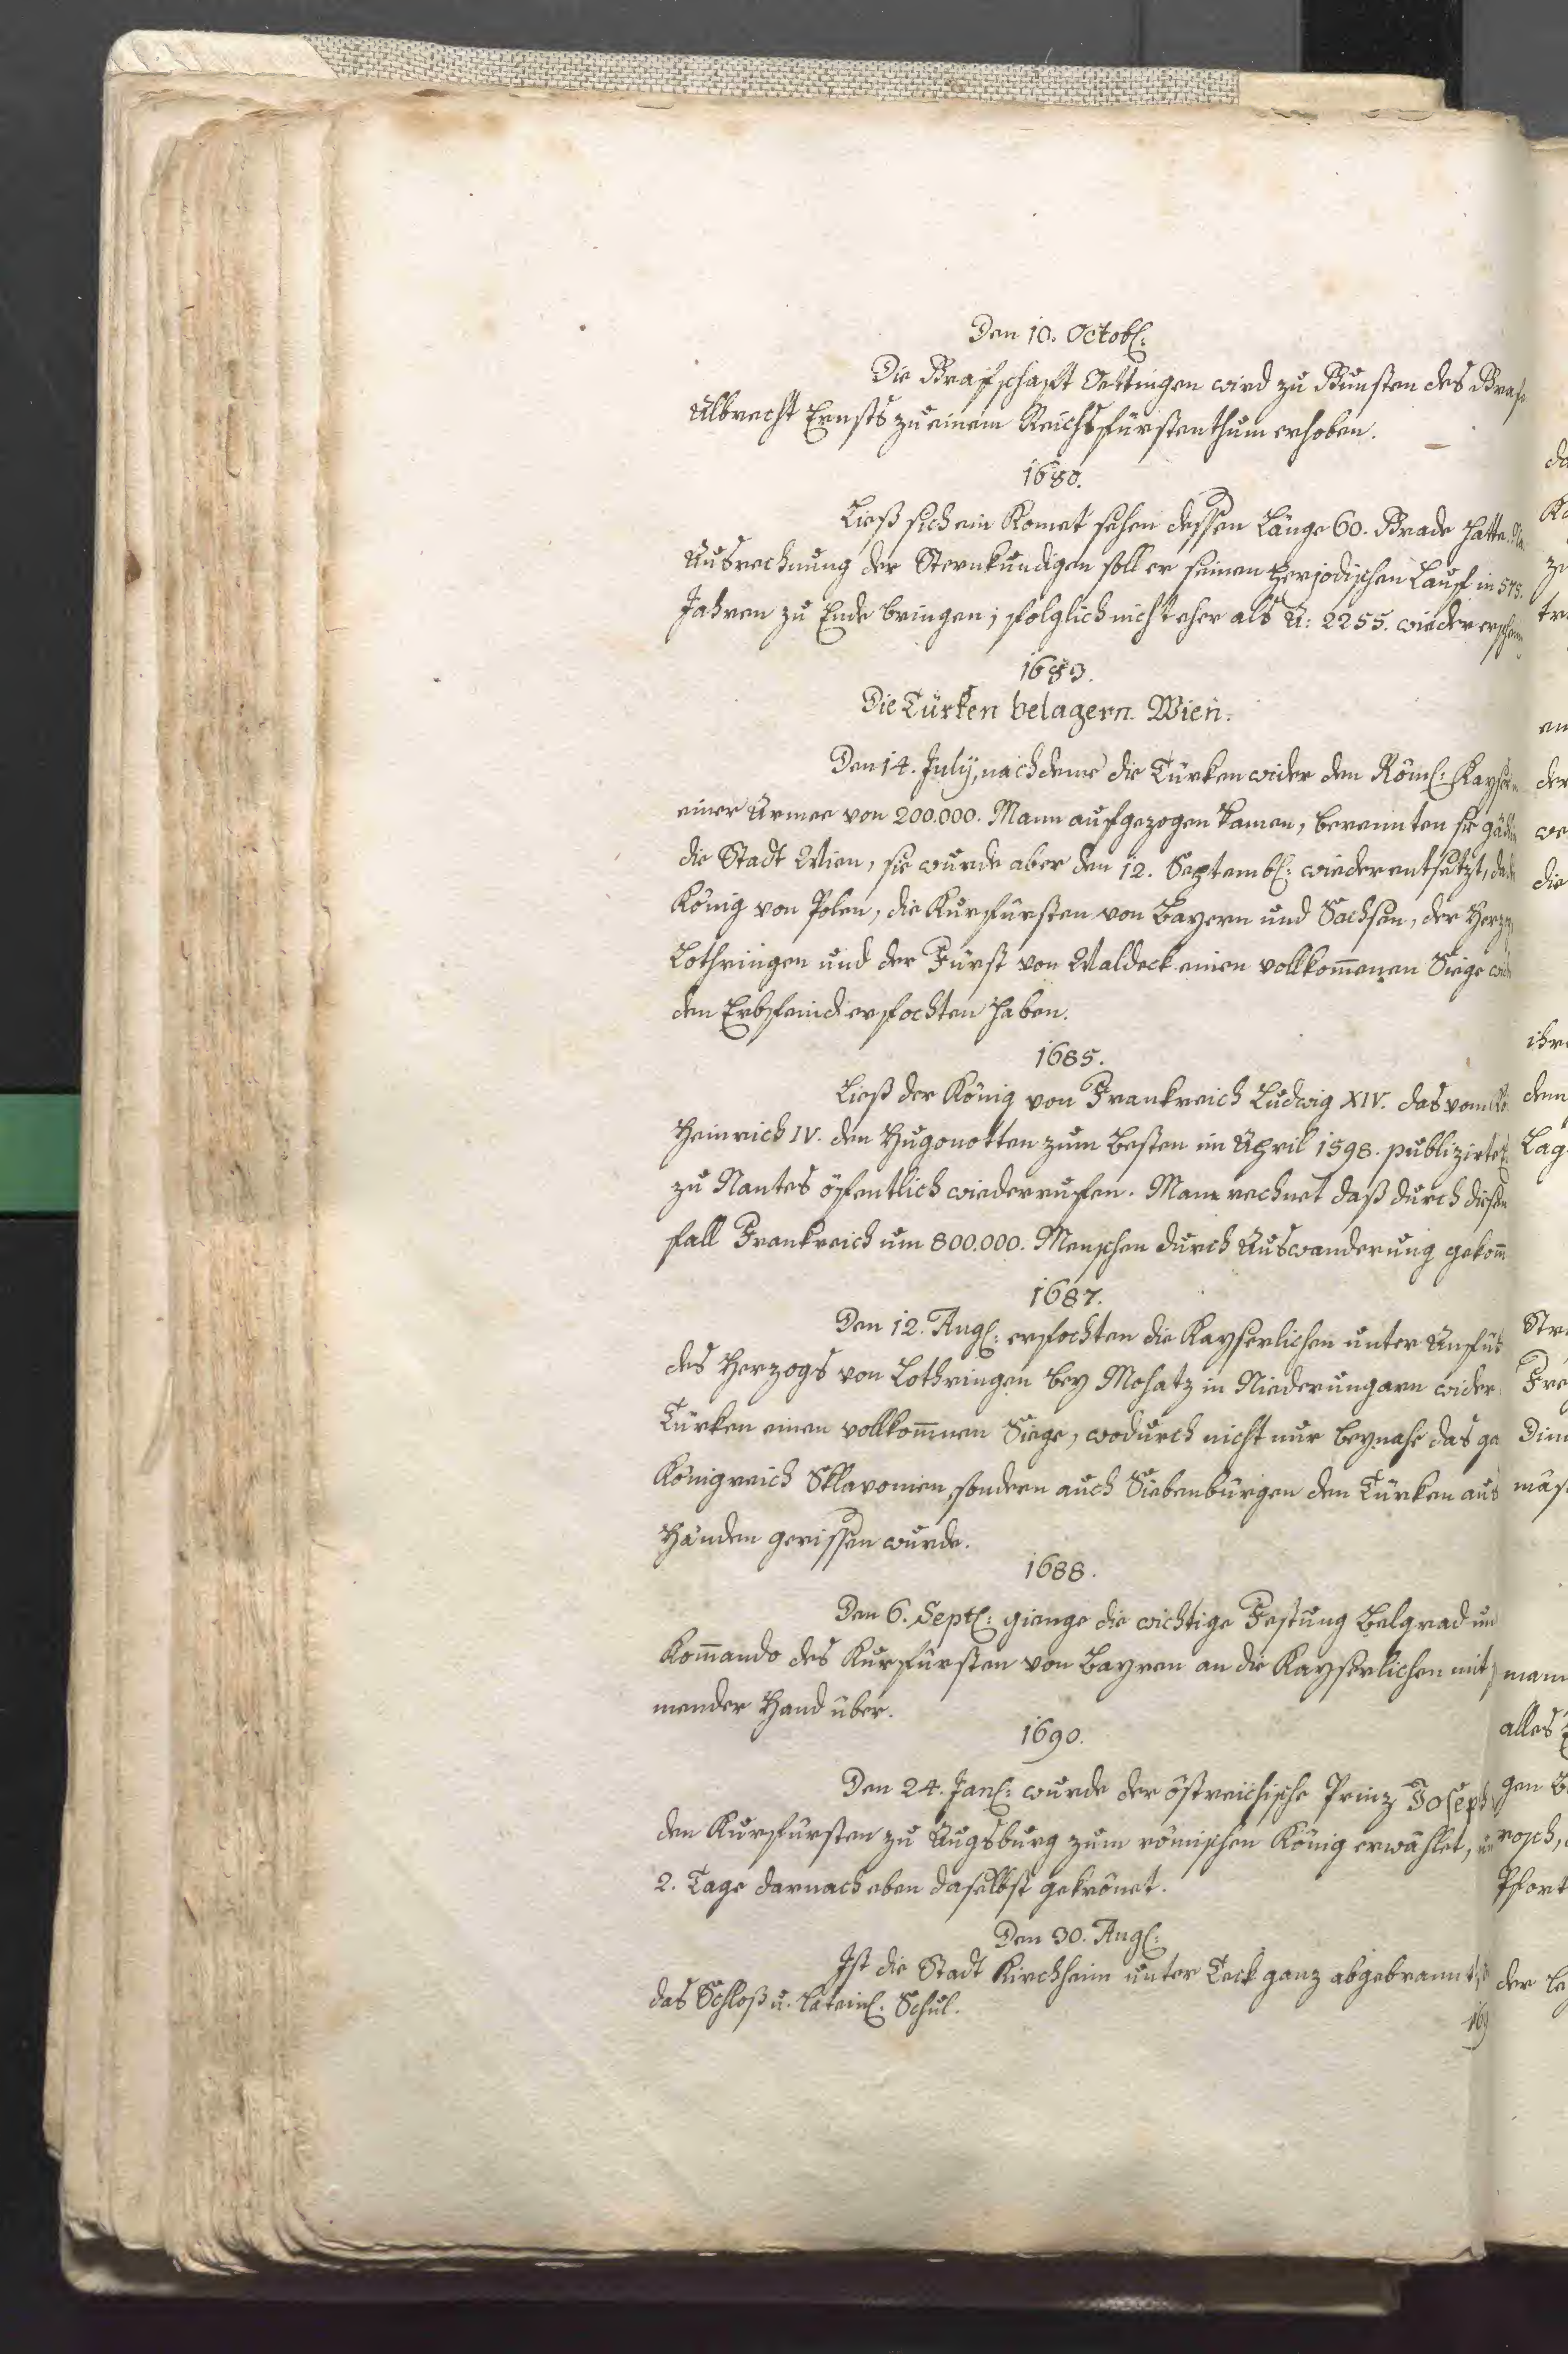 Den 10. Octobl:
Die Grafschaft Oettingen wird zu Gunsten des Grafe
Albrecht Ernsts zu einem Reichsfürstenthum erhoben.
1680.
Ließ sich ein Komet sehen dessen Länge 60. Grade hatte.
Ausrechnung der Sternkundigen soll er seinen perjodischen Lauf in 575.
Jahren zu Ende bringen; folglich nicht eher als A: 2255. wieder erschein
1683.
Die Türken belagern Wien.
Den 14. July, nachdeme die Türken wider den Röml: Kayser
einer Armee von 200.000. Mann aufgezogen kamen, berennten sie
die Stadt Wien, sie wurde aber den 12. Septembl: wieder entsetzt,
König von Polen, die Kurfürsten von Bayern und Sachsen, der Herzog
Lothringen und der Fürst von Waldeck einen vollkom̄enen Siege wid
den Erbfeind erfochten haben.
1685.
Ließ der König von Frankreich Ludwig XIV. das vom
Heinrich IV. den Hugonotten zum Besten im April 1598. publizirte
zu Nantes öffentlich wiederrufen. Mann rechnet daß durch diesen
fall Frankreich um 800.000. Menschen durch Auswanderung gekom̄
1687.
Den 12. Augl: erfochten die Kayserlichen unter Anfüh
des Herzogs von Lothringen bey Mohatz in Niederungarn wider
Türken einen vollkom̄nen Siege, wodurch nicht nur beynahe das ga
Königreich Sklavonien, sondern auch Siebenbürgen den Türken aus
Händen gerissen wurde.
1688.
Den 6. Septl: gienge die wichtige Festung Belgrad un
Kom̄ando des Kurfürsten von Bayren an die Kayserlichen mit
mender Hand über.
1690.
Den 24. Janl: wurde der östreichische Prinz Joseph
den Kurfürsten zu Augsburg zum römischen König erwählet, un
2. Tage darnach eben daselbst gekrönet.
Den 30. Augl:
Ist die Stadt Kirchheim unter Teck ganz abgebrannt,
das Schloß u. Lateinl: Schul.
169
zu
tr
en
der
we
die
ihre
dem
Lag
Str
Fre
mäs
mann
alles
gen B
rosch,
Pfort
der